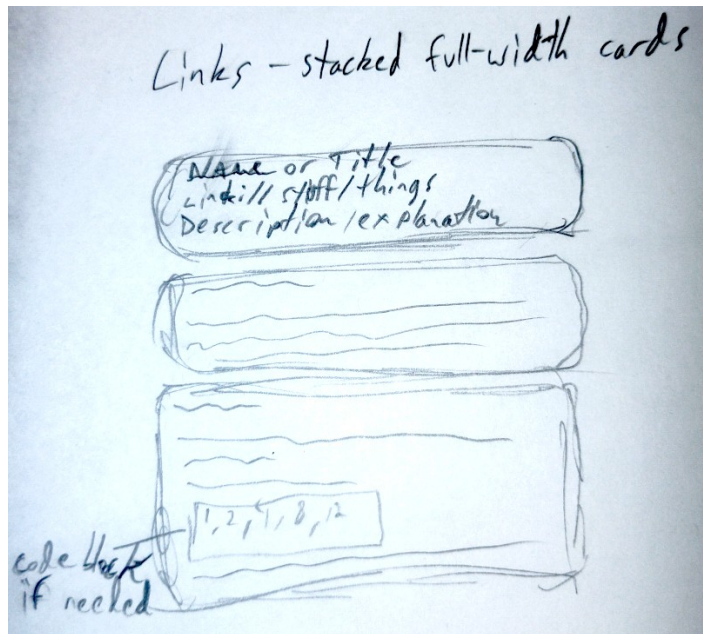 Links - stacked full-width cards
Name or Title
Link://stuff/things
Description/explanation
1, 2, 4, 8, 12
code block
if needed